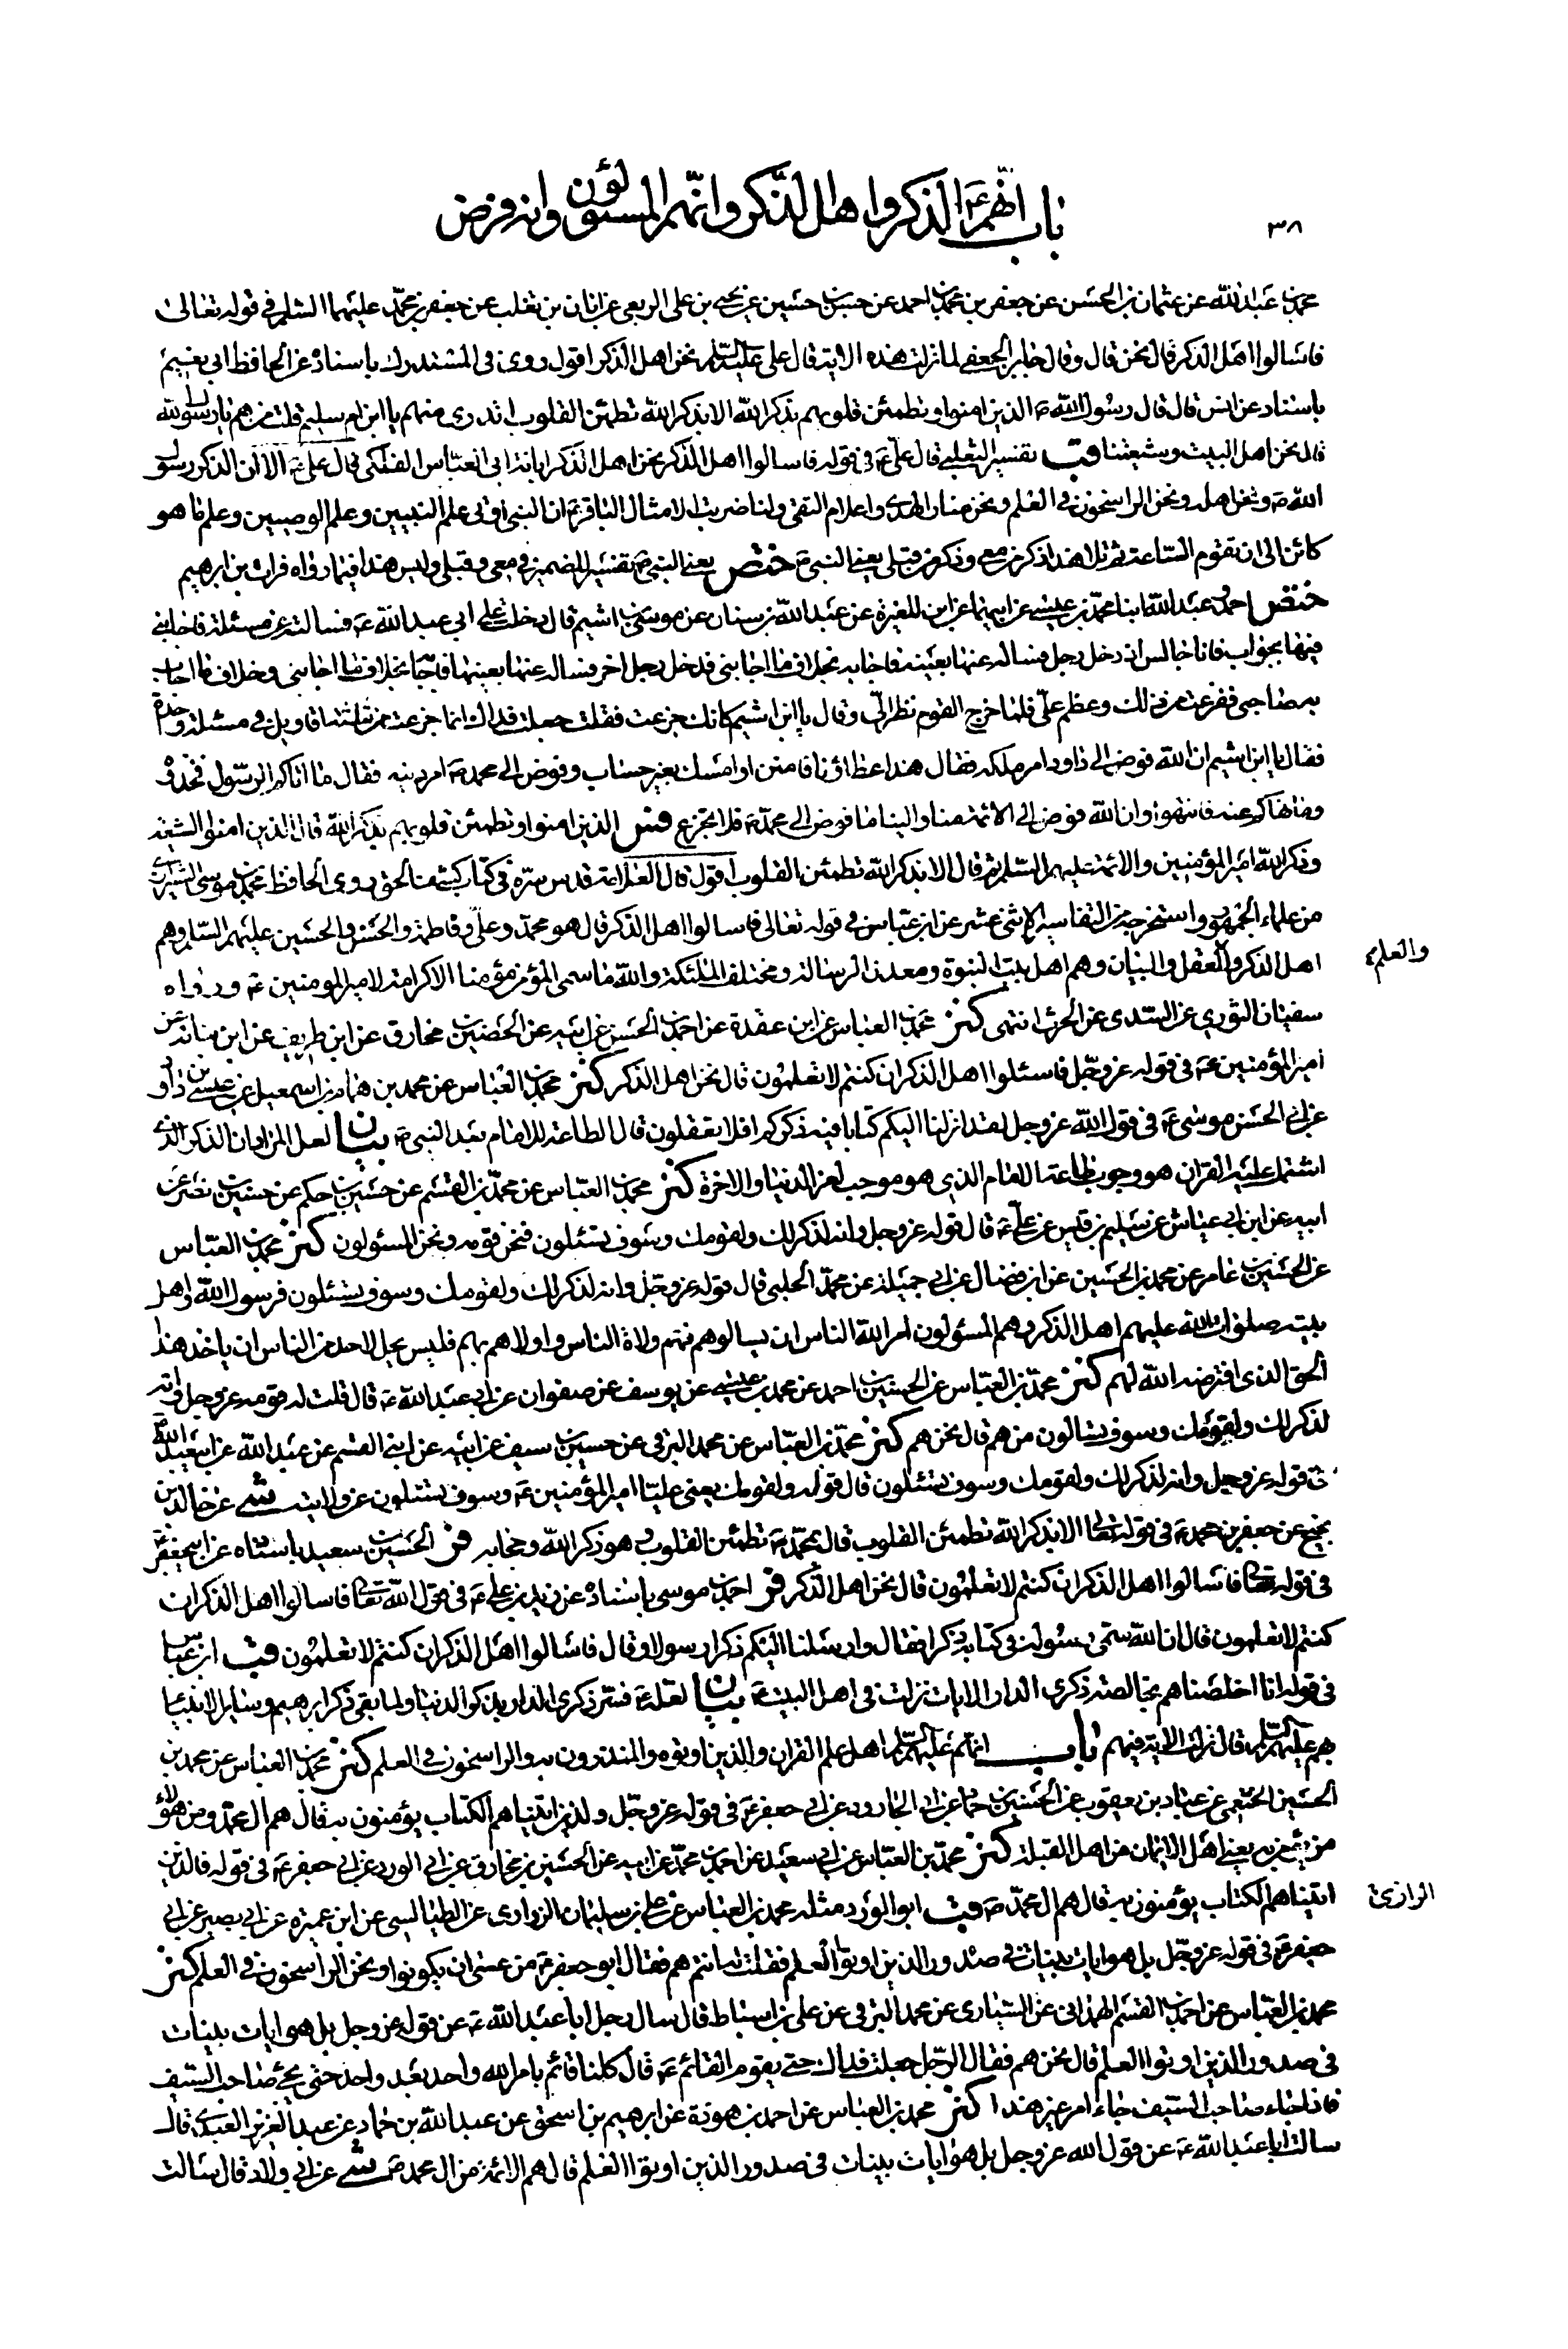 ٣٨
باب انهم ع الذكر واهل الذكر وانهم المسئولون وانه فرض
محمد بن عبد الله عن عثمان بن الحسن عن جعفر بن محمد بن احمد عن حسن بن حسين عن يحيى بن على الربعى عن ابان بن تغلب عن جعفر بن محمد عليهما السلم فى قوله تعالى
فاسالوا اهل الذكر قال نحن قال وقال جابر الجعفى لما نزلت هذه الاية قال على عليه السلم نحن اهل الذكر اقول روى فى المستدرك باسناده عن الحافظ ابى نعيم
باسناده عن انس قال قال رسول الله ص الذين امنوا وتطمئن قلوبهم بذكر الله الا بذكر الله تطمئن القلوب اتدرى منهم يا ابن ام سليم قلت من هم يا رسول الله
قال نحن اهل البيت وشيعتنا قب تفسير الثعلبى قال على ع فى قوله فاسالوا اهل الذكر نحن اهل الذكر ابانة ابى العباس الفلكى قال على ع الا ان الذكر رسول
الله ص ونحن اهله ونحن الراسخون فى العلم ونحن منار الهدى واعلام التقى ولنا ضربت الامثال الباقر ع ان النبى اوتى علم النبيين وعلم الوصيين وعلم ما هو
كائن الى ان تقوم الساعة ثم تلا هذا ذكر من معى وذكر من قبلى يعنى النبى ص ختص يعنى النبى ص تفسير للضمير فى معى وقبلى وليس هذا فيما رواه فرات بن ابرهيم
ختص احمد وعبد الله ابنا محمد بن عيسى عن ابيهما عن ابن المغيرة عن عبد الله بن سنان عن موسى بن اشيم قال دخلت على ابى عبد الله ع فسالته عن مسئلة فاجابنى
فيها بجواب فانا جالس اذ دخل رجل فساله عنها بعينها فاجابه بخلاف ما اجابنى فدخل رجل اخر فساله عنها بعينها فاجابه بخلاف ما اجابنى وخلاف ما اجاب
به صاحبى ففزعت من ذلك وعظم على فلما خرج القوم نظر الى وقال يا ابن اشيم كانك جزعت فقلت جعلت فداك انما جزعت من ثلثة اقاويل فى مسئلة واحدة
فقال يا ابن اشيم ان الله فوض الى داود امر ملكه فقال هذا عطاؤنا فامنن او امسك بغير حساب وفوض الى محمد ص امر دينه فقال ما اتاكم الرسول فخذوه
وما نهاكم عنه فانتهوا وان الله فوض الى الائمة منا والينا ما فوض الى محمد ص فلا تجزع فس الذين امنوا وتطمئن قلوبهم بذكر الله قال الذين امنوا الشيعة
وذكر الله امير المؤمنين والائمة عليهم السلم ثم قال الا بذكر الله تطمئن القلوب اقول قال العلامة قدس سره فى كتاب كشف الحق روى الحافظ محمد بن موسى الشيرازى
من علماء الجمهور واستخرجه من التفاسير الاثنى عشر عن ابن عباس فى قوله تعالى فاسالوا اهل الذكر قال هو محمد وعلى وفاطمة والحسن والحسين عليهم السلم هم
اهل الذكر والعقل والبيان وهم اهل بيت النبوة ومعدن الرسالة ومختلف الملئكة والله ما سمى المؤمن مؤمنا الا كرامة لامير المومنين ع ورواه
والعلم
سفيان الثورى عن السدى عن الحرث انتهى كنز محمد بن العباس عن ابن عقدة عن احمد بن الحسن عن ابيه عن الحضين بن مخارق عن ابن طريف عن ابن نباته عن
امير المؤمنين ع فى قوله عز وجل فاسئلوا اهل الذكر ان كنتم لا تعلمون قال نحن اهل الذكر كنز محمد بن العباس عن محمد بن همام عن اسمعيل عن عيسى بن داود
عن ابى الحسن موسى ع فى قول الله عز وجل لقد انزلنا اليكم كتابا فيه ذكركم افلا تعقلون قال الطاعة للامام بعد النبى ص بيان لعل المراد ان الذكر الذى
اشتمل عليه القران هو وجوب طاعة الامام الذى هو موجب لعز الدنيا والاخرة كنز محمد بن العباس عن محمد بن القسم عن حسين بن حكم عن حسين بن نصر عن
ابيه عن ابن ابى عياش عن سليم بن قيس عن على ع قال قوله عز وجل وانه لذكر لك ولقومك وسوف تسئلون فنحن قومه ونحن المسئولون كنز محمد بن العباس
عن الحسين بن عامر عن محمد بن الحسين عن ابن فضال عن ابى جميلة عن محمد الحلبى قال قوله عز وجل وانه لذكر لك ولقومك وسوف تسئلون فرسول الله واهل
بيته صلوات الله عليهم اهل الذكر وهم المسئولون امر الله الناس ان يسالوهم فهم ولاة الناس واولاهم بهم فليس يحل لاحد من الناس ان ياخذ هذا
الحق الذى افترضه الله لهم كنز محمد بن العباس عن الحسين بن احمد عن محمد بن عيسى عن يوسف عن صفوان عن ابى عبد الله ع قال قلت له قوله عز وجل وانه
لذكر لك ولقومك وسوف تسالون من هم قال نحن هم كنز محمد بن العباس عن محمد البرقى عن حسين بن سيف عن ابيه عن ابنى القسم عن عبد الله عن ابى عبد الله ع
فى قوله عز وجل وانه لذكر لك ولقومك وسوف تسئلون قال قوله ولقومك يعنى عليا امير المؤمنين ع وسوف تسئلون عن ولايته شى عن خالد بن
نجيح عن جعفر بن محمد ع فى قوله تعالى الا بذكر الله تطمئن القلوب قال بمحمد ص تطمئن القلوب وهو ذكر الله وحجابه فر الحسين بن سعيد باسناده عن ابى جعفر ع
فى قوله تعالى فاسالوا اهل الذكر ان كنتم لا تعلمون قال نحن اهل الذكر فر احمد بن موسى باسناده عن زيد بن على ع فى قول الله تعالى فاسالوا اهل الذكر ان
كنتم لا تعلمون قال ان الله سمى رسوله فى كتابه ذكرا فقال وارسلنا اليكم ذكرا رسولا وقال فاسالوا اهل الذكر ان كنتم لا تعلمون قب ابن عباس
فى قوله انا اخلصناهم بخالصة ذكرى الدار الايات نزلت فى اهل البيت ع بيان لعله ع فسر ذكرى الدار بذكر الدنيا ولما بقى ذكر ابرهيم وساير الانبياء
بهم عليهم السلم قال نزلت الاية فيهم باب انهم عليهم السلم اهل علم القران والذين اوتوه والمنذرون به والراسخون فى العلم كنز محمد بن العباس عن محمد بن
الحسين الخثعمى عن عباد بن يعقوب عن الحسين بن حماد عن ابى الجارود عن ابى جعفر ع فى قوله عز وجل والذين اتيناهم الكتاب يؤمنون به قال هم ال محمد ومن هؤلاء
من يؤمن به يعنى اهل الايمان من اهل القبلة كنز محمد بن العباس عن ابى سعيد عن احمد بن محمد عن ابيه عن الحسين بن مخارق عن ابى الورد عن ابى جعفر ع فى قوله فالذين
اتيناهم الكتاب يؤمنون به قال هم ال محمد ص قب ابو الورد مثله محمد بن العباس عن على بن سليمان الزرادى عن الطيالسى عن ابن عميرة عن ابى بصير عن ابى
الرازى
جعفر ع فى قوله عز وجل بل هو ايات بينات فى صدور الذين اوتوا العلم فقلت له انتم هم فقال ابو جعفر ع من عسى ان يكونوا ونحن الراسخون فى العلم كنز
محمد بن العباس عن احمد بن القسم الهمدانى عن السيارى عن محمد البرقى عن على بن اسباط قال سال رجل ابا عبد الله ع عن قوله عز وجل بل هو ايات بينات
فى صدور الذين اوتوا العلم قال نحن هم فقال الرجل جعلت فداك حتى يقوم القائم ع قال كلنا قائم بامر الله واحد بعد واحد حتى يجئ صاحب السيف
فاذا جاء صاحب السيف جاء امر غير هذا كنز محمد بن العباس عن احمد بن هوذة عن ابرهيم بن اسحق عن عبد الله بن حماد عن عبد العزيز العبدى قال
سالت ابا عبد الله ع عن قول الله عز وجل بل هو ايات بينات فى صدور الذين اوتوا العلم قال هم الائمة من ال محمد ص شى عن ابى ولاد قال سالت